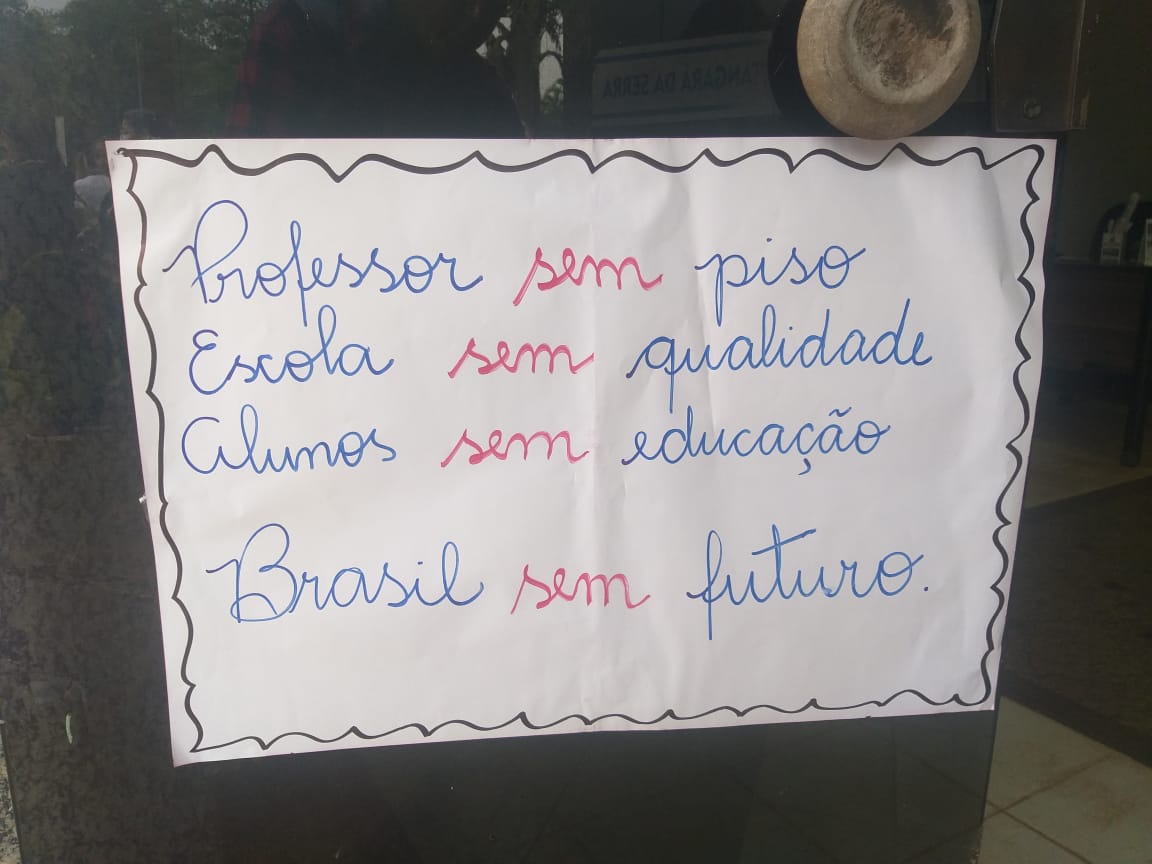 TANGARÁ DA SERRA
Professor sem piso
Escola sem qualidade
Alunos sem educação
Brasil sem futuro.